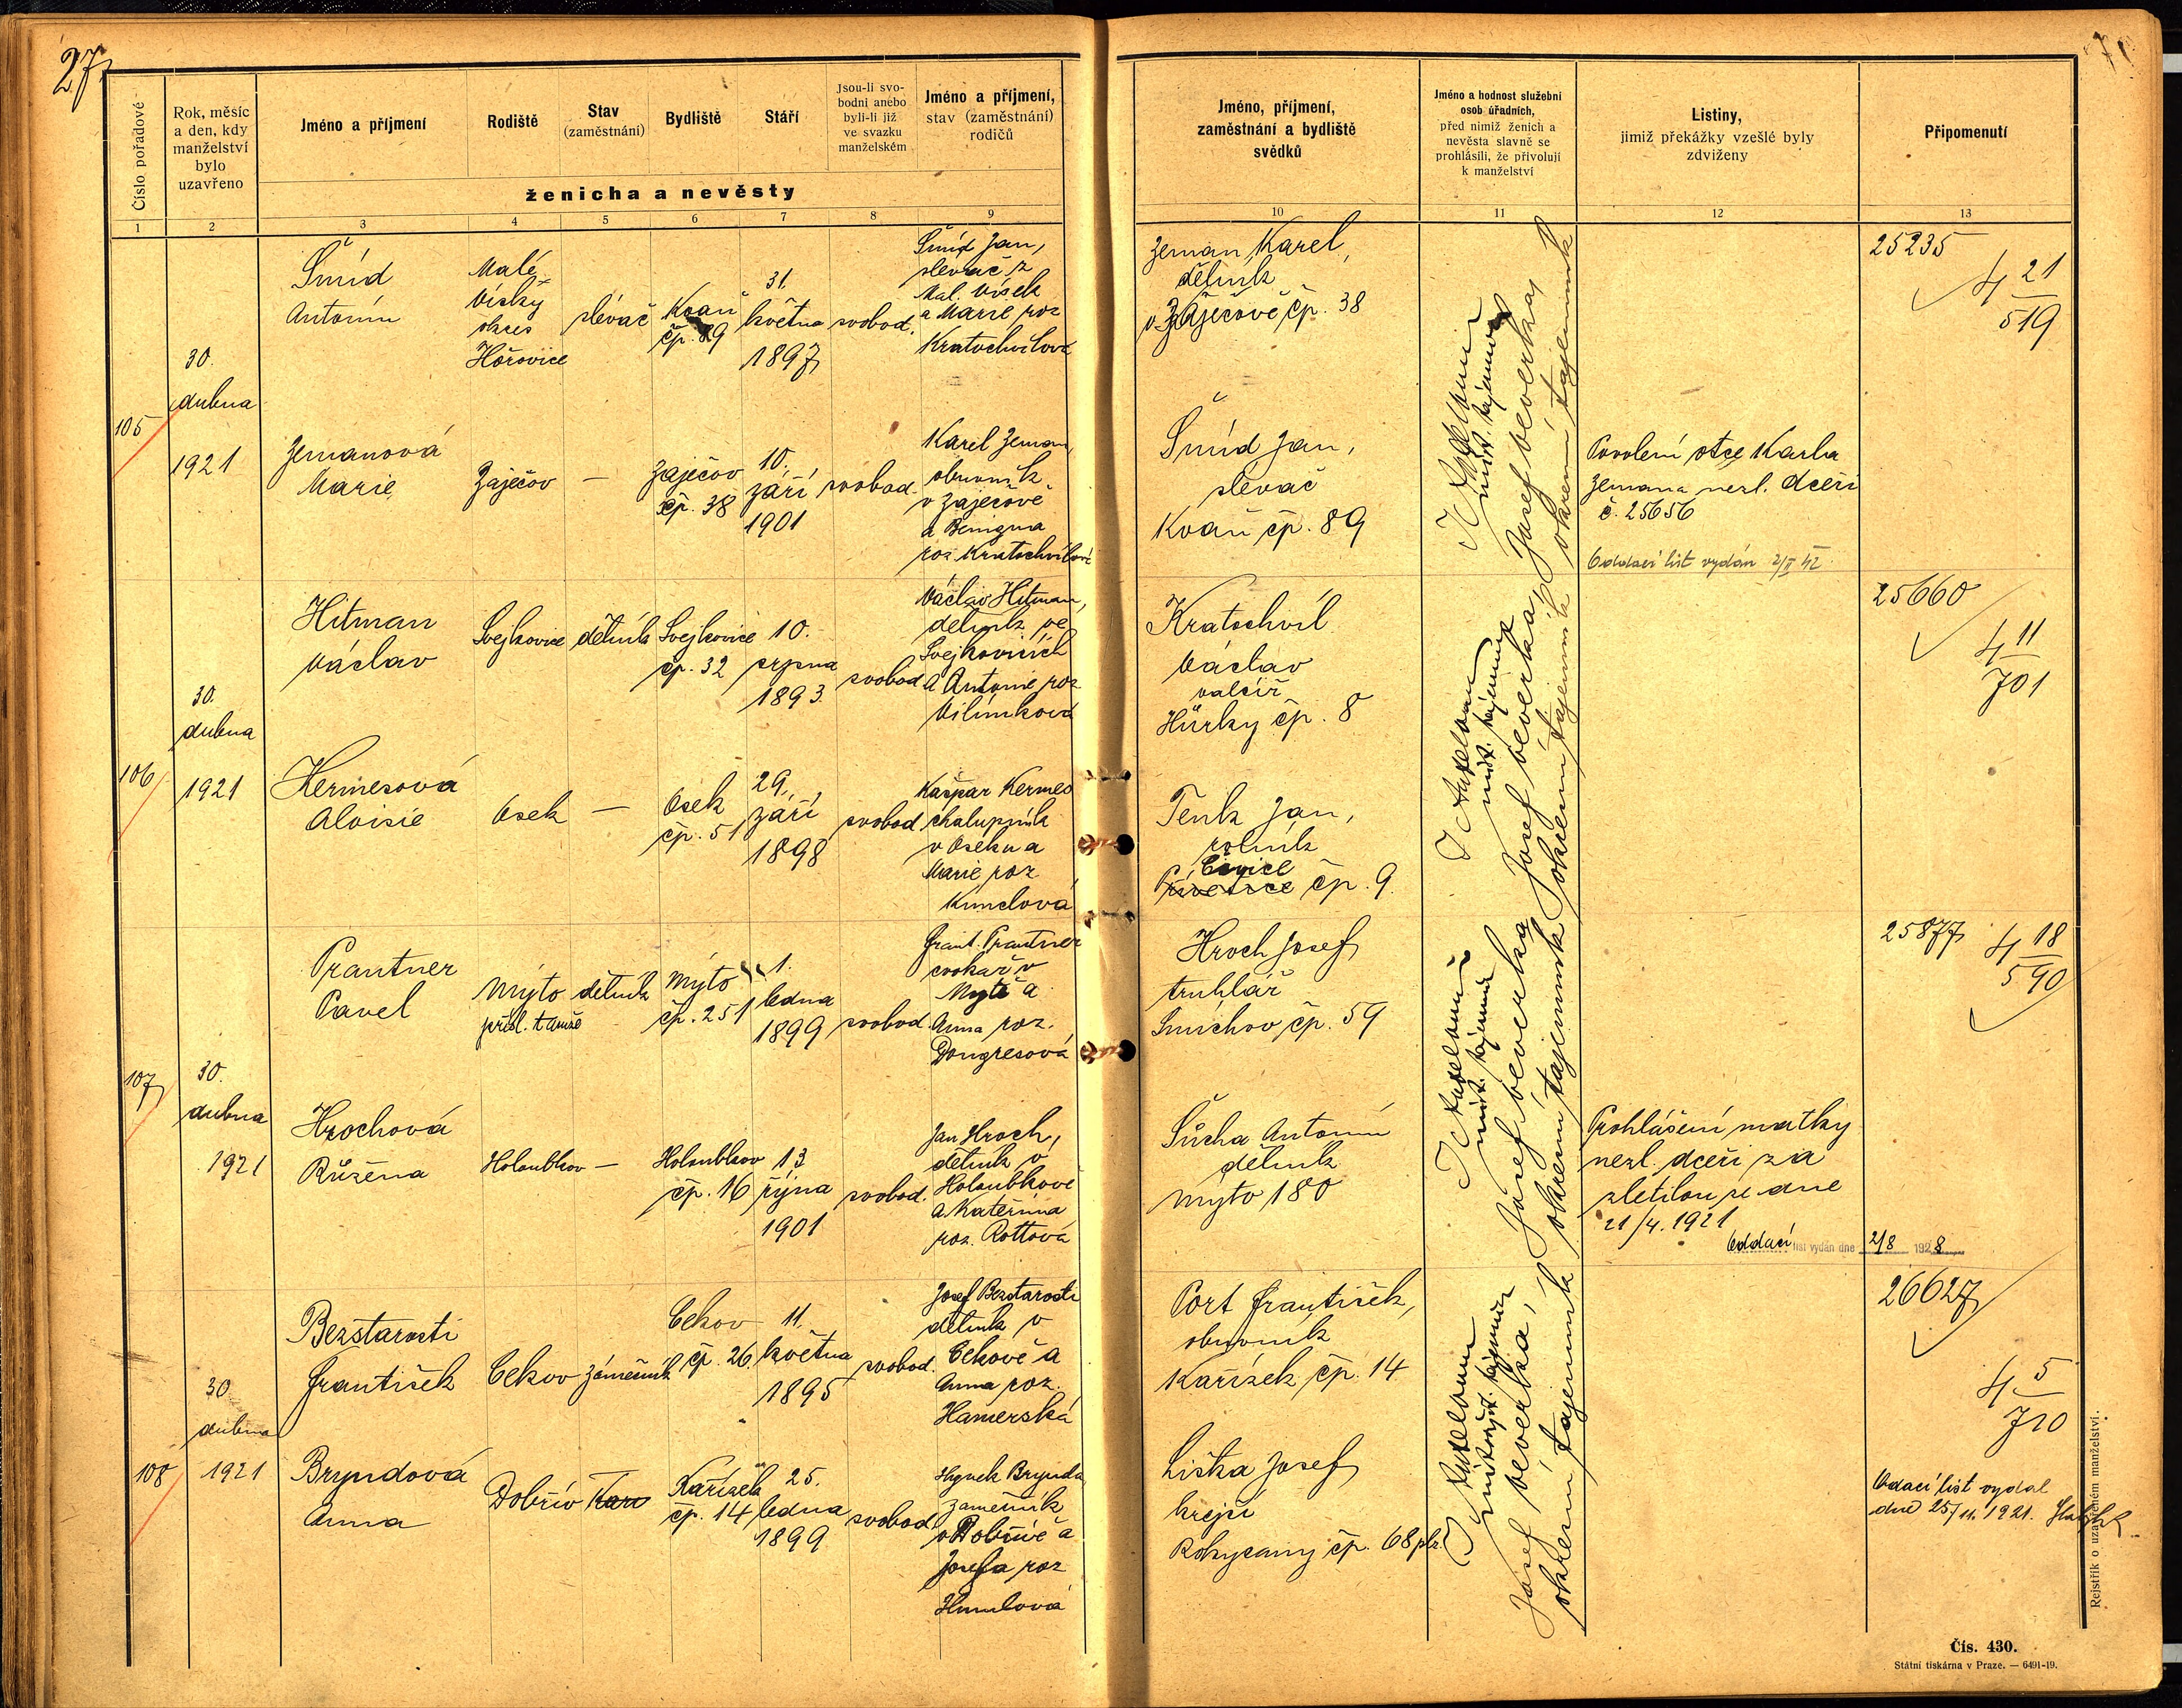 27
Číslo pořadové
Rok, měsíc
a den, kdy
manželství
bylo
uzavřeno
Jméno a příjmení
Rodiště
Stav
(zaměstnání)
Bydliště
Stáří
Jsou-li svo-
bodni anebo
byli-li již
ve svazku
manželském
Jméno a příjmení,
stav (zaměstnání)
rodičů
ženicha a nevěsty
Jméno, příjmení,
zaměstnání a bydliště
svědků
Jméno a hodnost služební
osob úřadních,
před nimiž ženich a
nevěsta slavně se
prohlásili, že přivolují
k manželství
Listiny,
jimiž překážky vzešlé byly
zdviženy
Připomenutí
1 2 3 4 5 6 7 8 9 10 11 12 13
105
30.
dubna
1921
Šmíd
Antonín
Malé
Vísky
okres
Hořovice
slévač
Kvaň
čp. 89
31.
května
1897
svobod.
Šmíd Jan,
slevač z
Mal. Vísek
a Marie roz
Kratochvílová
Zeman Karel,
dělník
v Zaječově čp. 38
25235
4 21
519
Zemanová
Marie
Zaječov
—
Zaječov
čp. 38
10.
září
1901
svobod.
Karel Zeman,
obuvník
v Zaječově
a Benigna
roz Kratochvílová
Šmíd Jan,
slevač
Kvaň čp. 89
Josef Veverka,
okresní tajemník
Povolení otce Karla
Zemana nezl. dceři
č. 25656
Oddací list vydán 2/II 42
106
30.
dubna
1921
Hitman
Václav
Svejkovice
dělník
Svejkovice
čp. 32
10.
srpna
1893
svobod
Václav Hitman,
dělník ve
Svejkovicích
a Antonie roz
Vilímková
Kratochvíl
Václav
valcíř
Hůrky čp. 8
25660
4 11
701
Hermesová
Aloisie
Osek
—
Osek
čp. 51
29.
září
1898
svobod
Kašpar Kermes
chalupník
v Oseku a
Marie roz
Kunclová
Tenk Jan,
rolník
čp. 9.
Josef Veverka,
okresní tajemník
107
30.
dubna
1921
Prantner
Pavel
Mýto
přísl. tamže
dělník
Mýto
čp. 251
1.
ledna
1899
svobod.
Frant. Prantner
cvokař v
Mýtě a
Anna roz.
Dongresová
Hroch Josef
truhlář
Smíchov čp. 59
25877
4 18
590
Hrochová
Růžena
Holoubkov
—
Holoubkov
čp. 16
13
října
1901
svobod.
Jan Hroch,
dělník v
Holoubkově
a Kateřina
roz. Rottová
Šůcha Antonín
dělník
Mýto 180
Josef Veverka
okresní tajemník
Prohlášení matky
nezl. dceři za
zletilou ze dne
21/4. 1921
Oddací list vydán dne 2/8 1928
108
30
dubna
1921
Bezstarosti
František
Cekov
zámečník
Cekov
čp. 26.
11.
května
1895
svobod.
Josef Bezstarosti
dělník v
Cekově a
Anna roz.
Hamerská
Port František,
obuvník
Kařízek čp. 14
26627
4 5
710
Bryndová
Anna
Dobřív
Kařízek
čp. 14
25.
ledna
1899
svobod
Hynek Brynda
zámečník
v Dobřívě a
Josefa roz
Humlová
Liška Josef
krejčí
Rokycany čp. 68 plz.
Josef Veverka,
okresní tajemník
Odací list vydal
dne 25/11. 1921.
Rejstřík o uzavřeném manželství.
Čís. 430.
Státní tiskárna v Praze. — 6491-19.